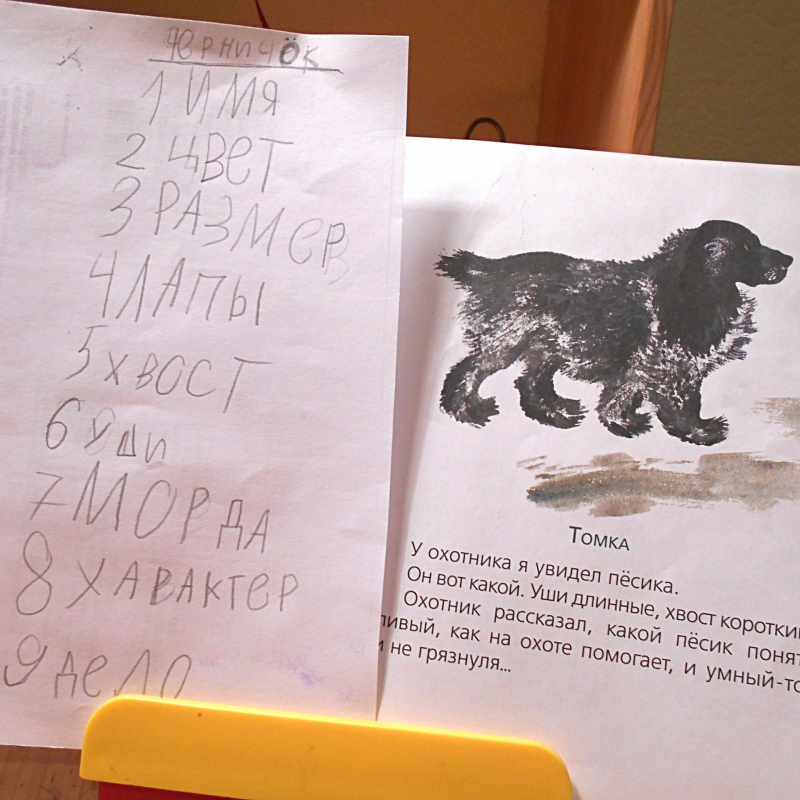 ЧЕРНИЧОК
1 ИМЯ
2 ЦВЕТ
3 РАЗМЕР
4 ЛАПЫ
5 ХВОСТ
6 УШИ
7 МОРДА
8 ХАРАКТЕР
9 ДЕЛО
Томка
У охотника я увидел пёсика.
Он вот какой. Уши длинные, хвост коротки
Охотник рассказал, какой пёсик понят
ливый, как на охоте помогает, и умный-то
и не грязнуля...